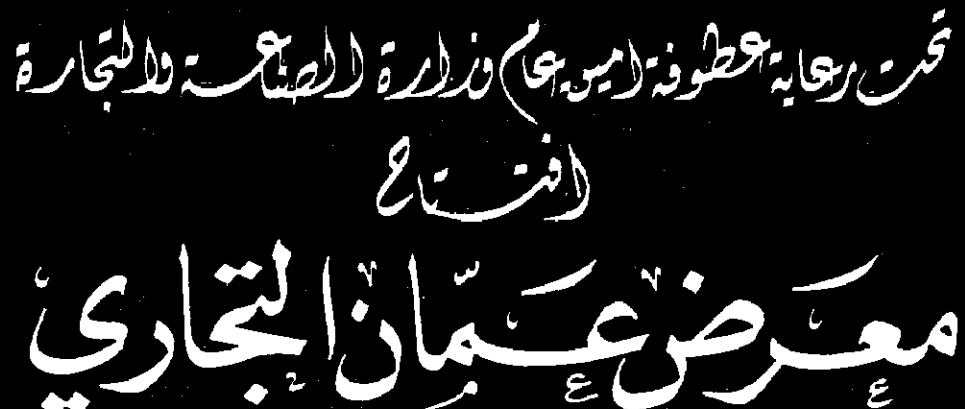 تحت رعاية عطوفة امين عام وزارة الصناعة والتجارة
افتتاح
معرض عمّان التجاري